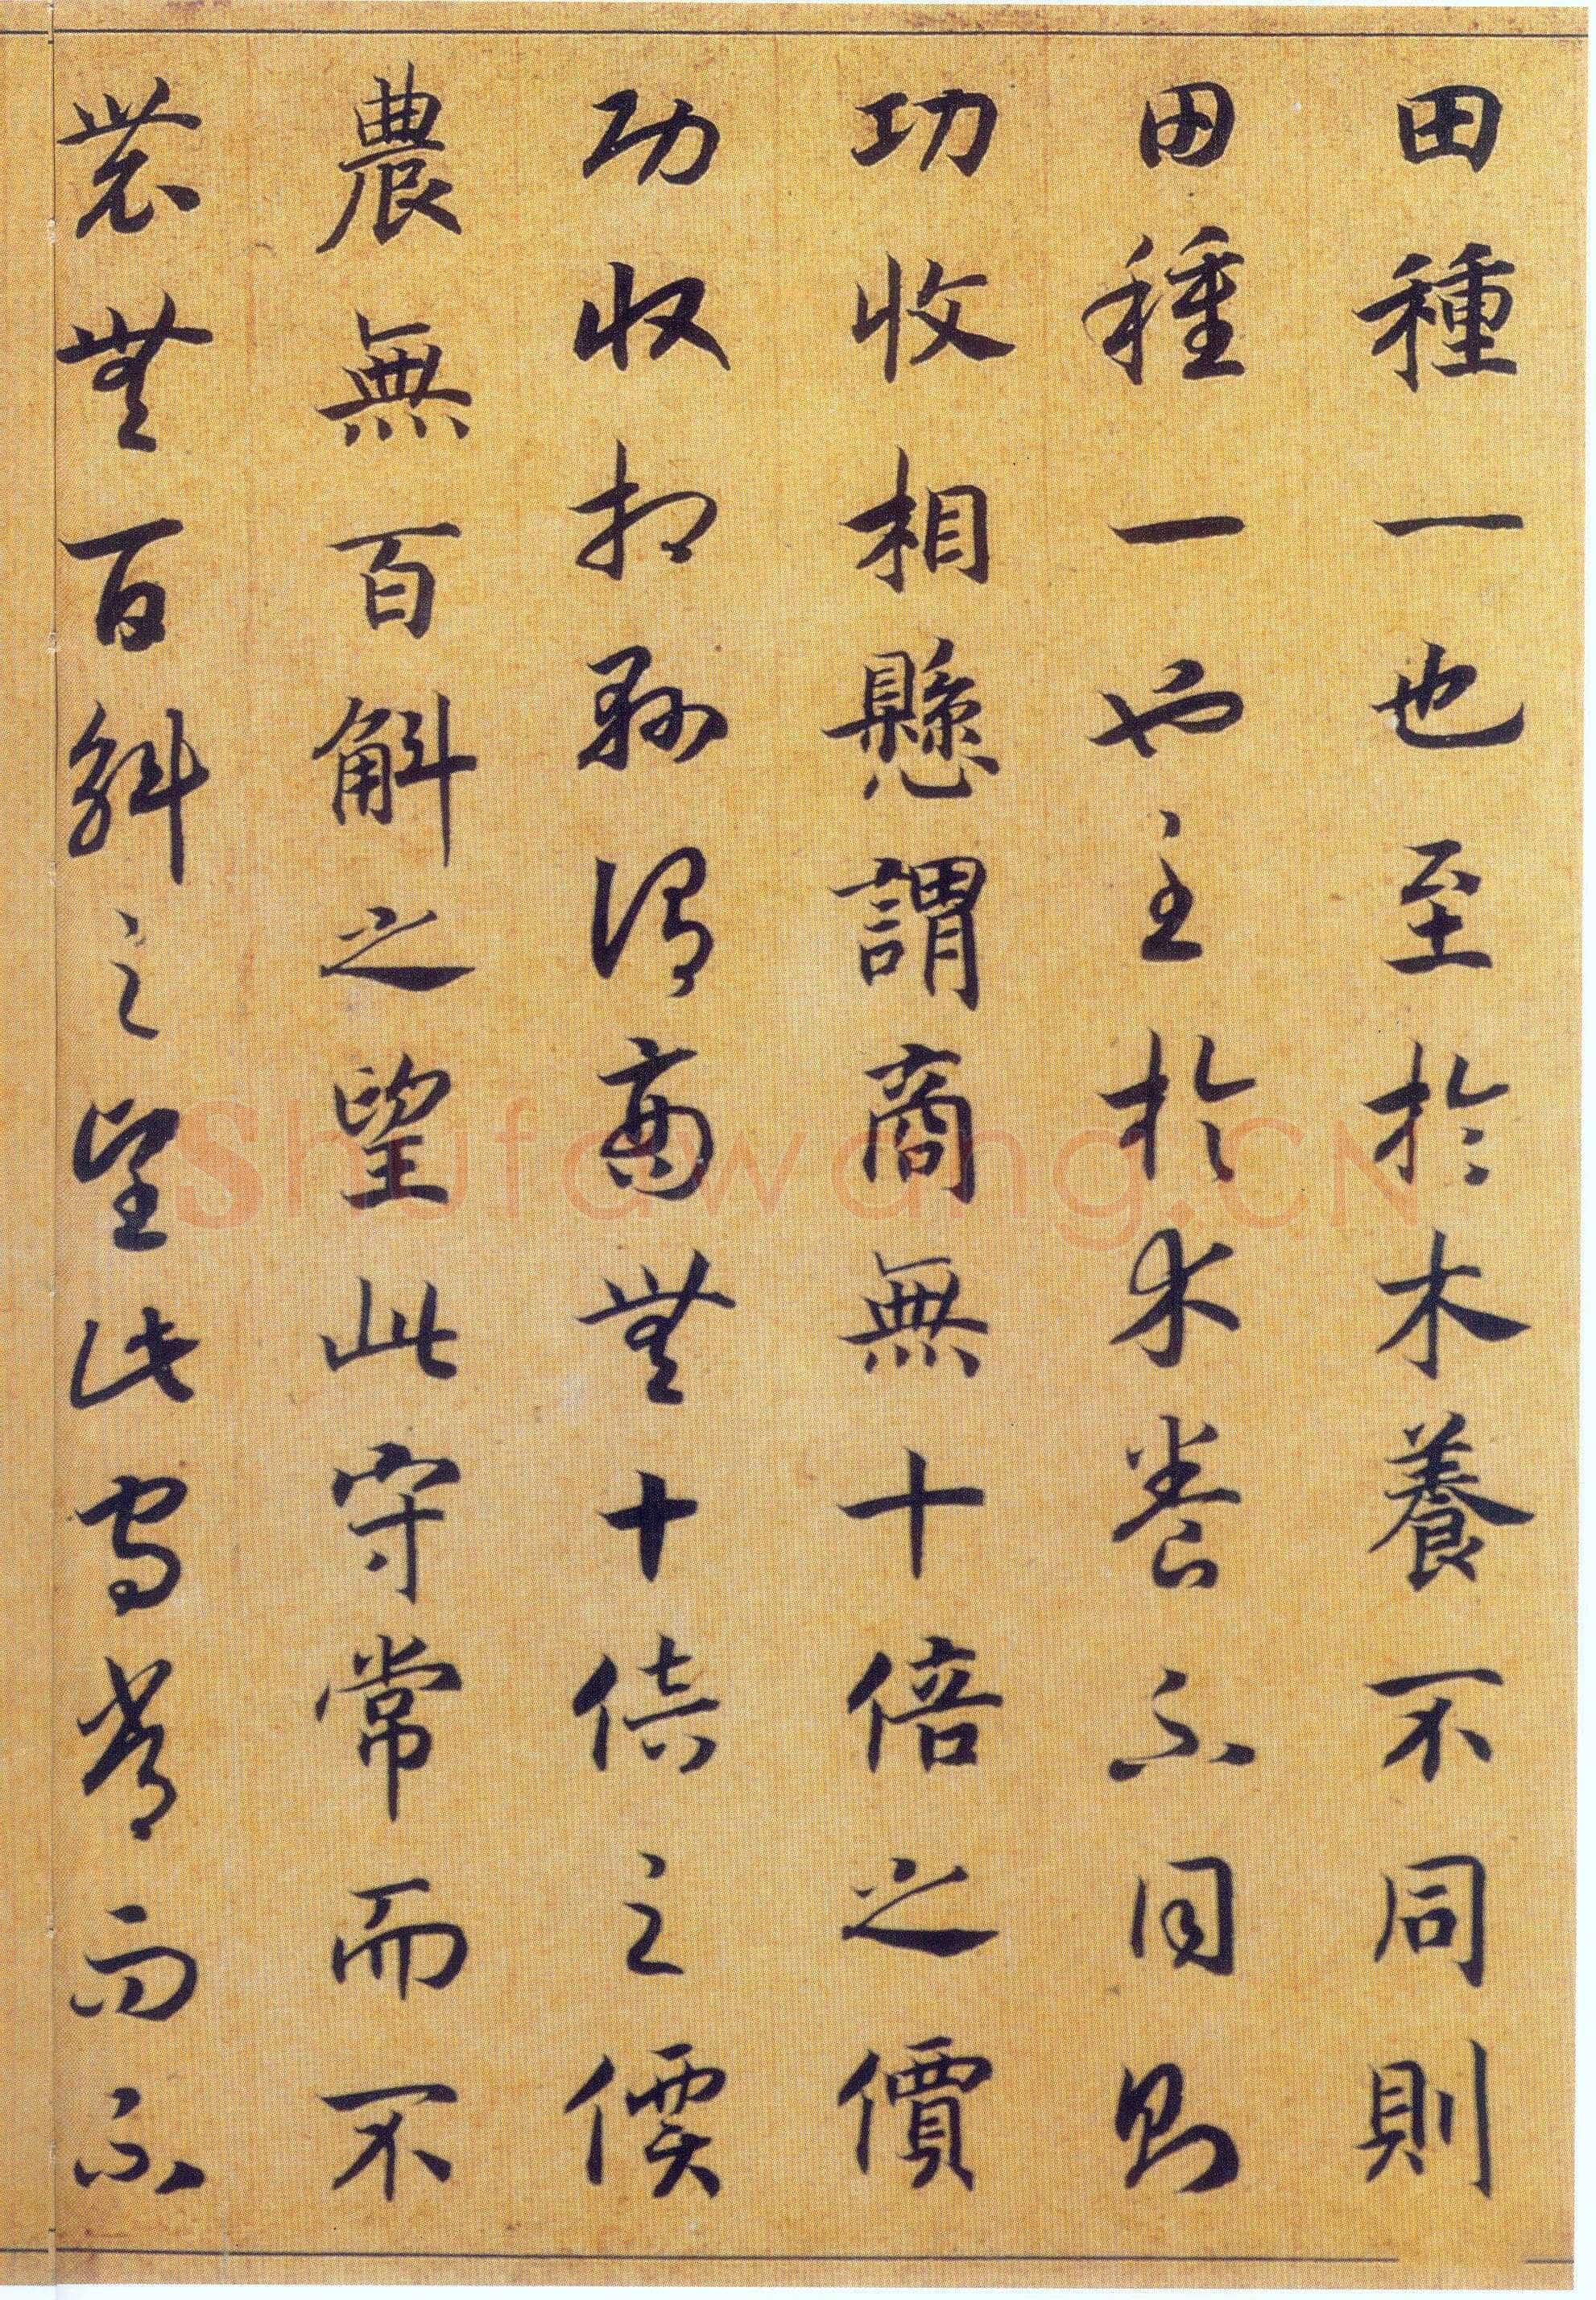 田種一也至於木養不同則
田種一也至於木養不同則
功收相懸謂商無十倍之價
功收相懸謂商無十倍之價
農無百斛之望此守常而不
農無百斛之望此守常而不
Shufawang.CN